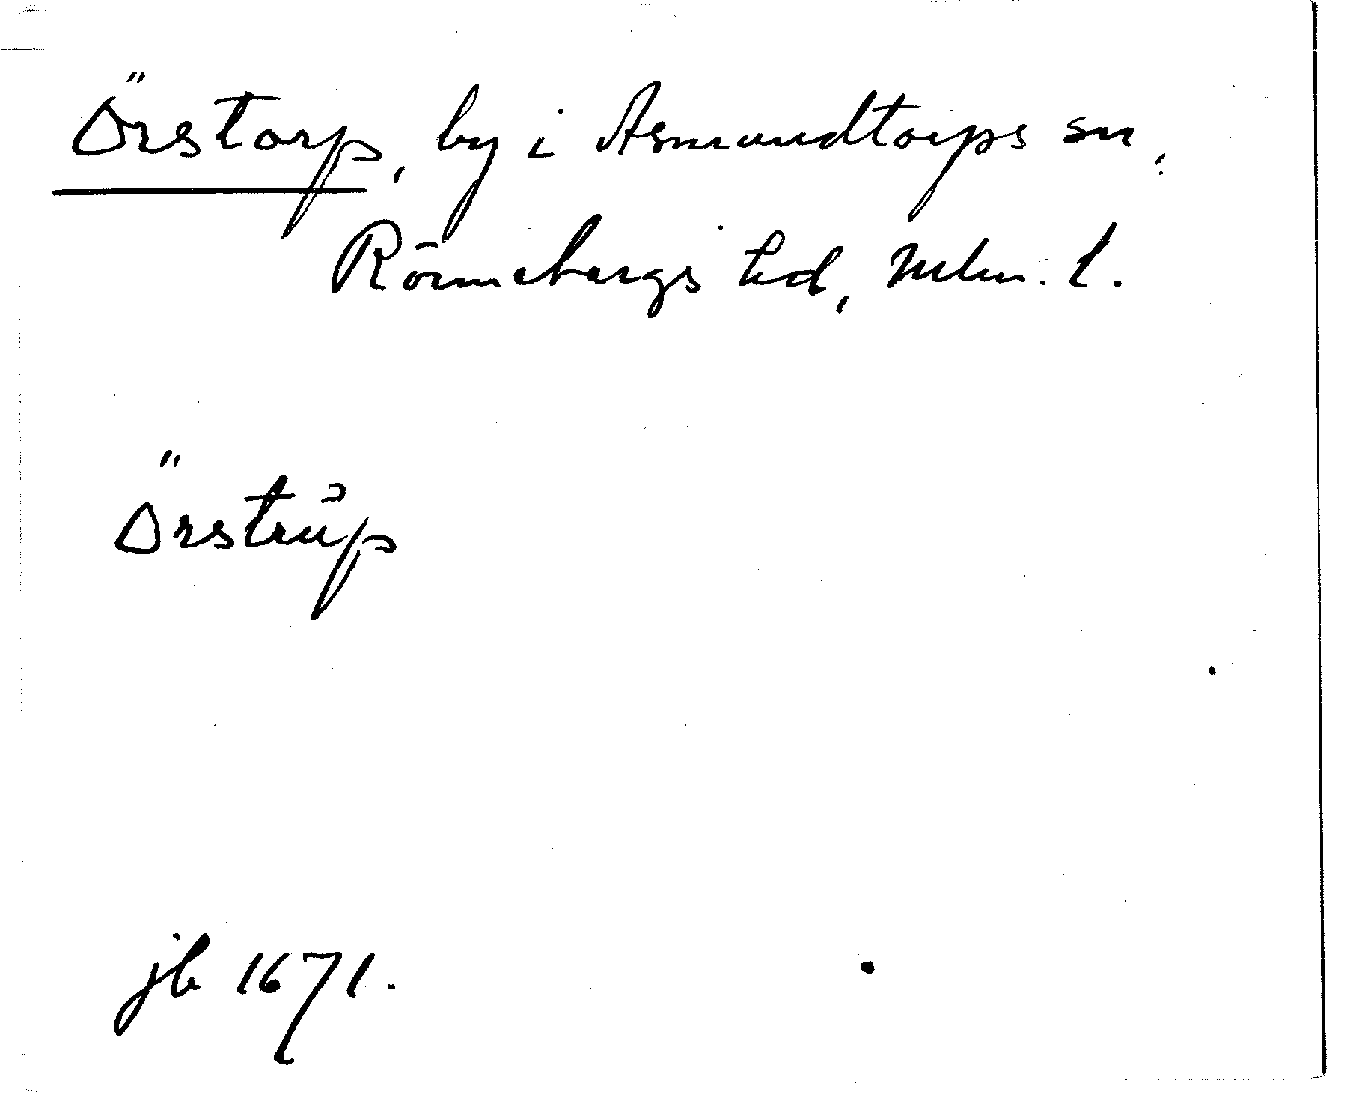 Örstorp, by i Asmundtorps sn,
Rönnebergs hd, Mlm. l.
Örstrup
jb 1671.